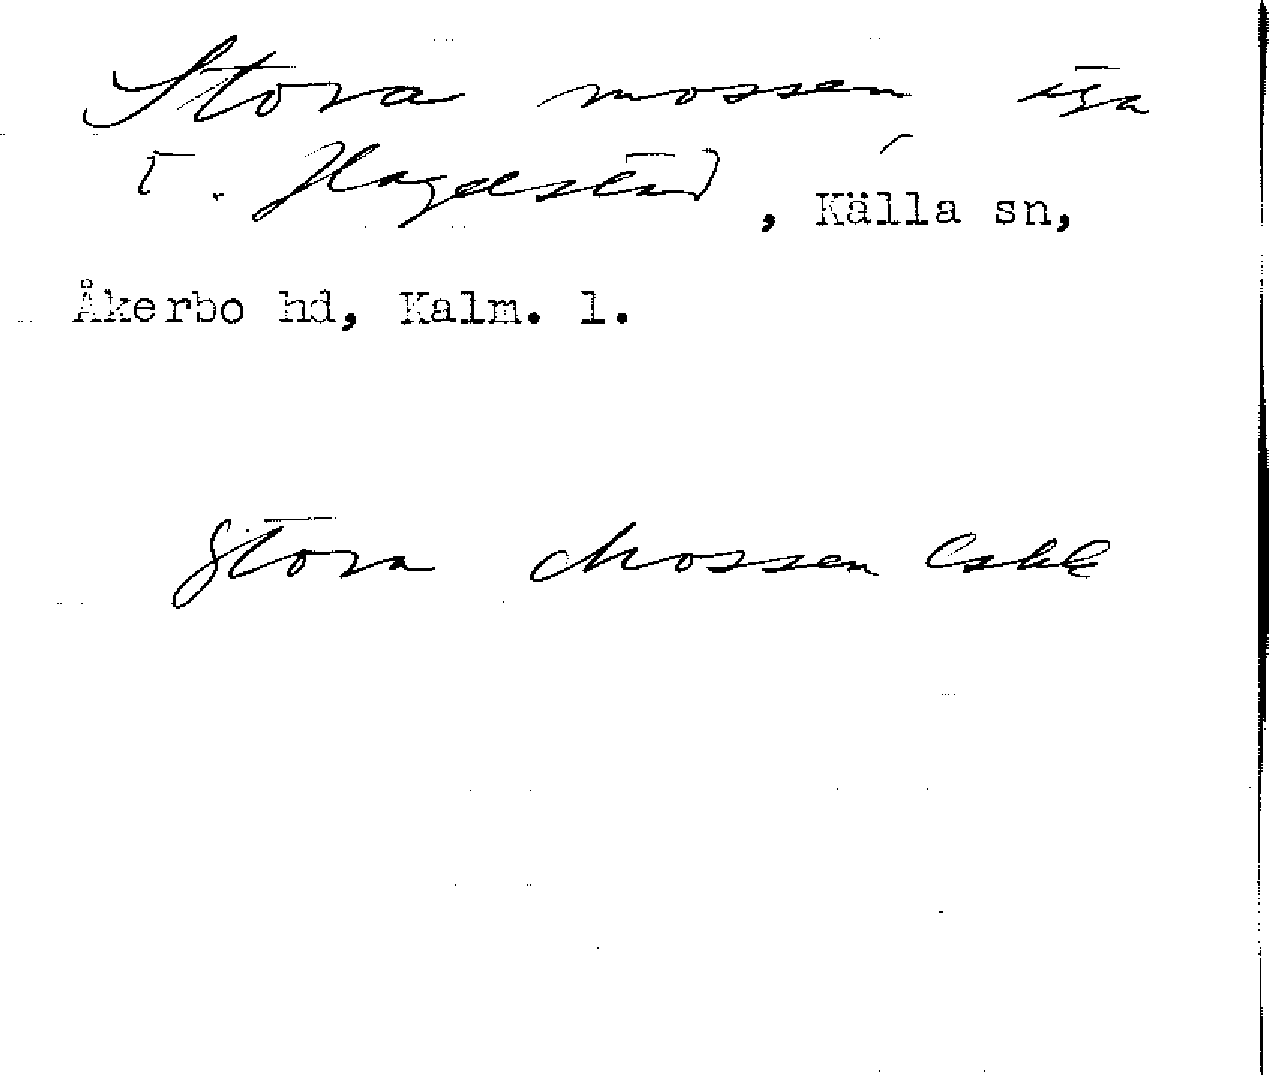 Stora mossen äga
t. Hagelstad, Källa sn,
Åkerbo hd, Kalm. l.
Stora Mossen